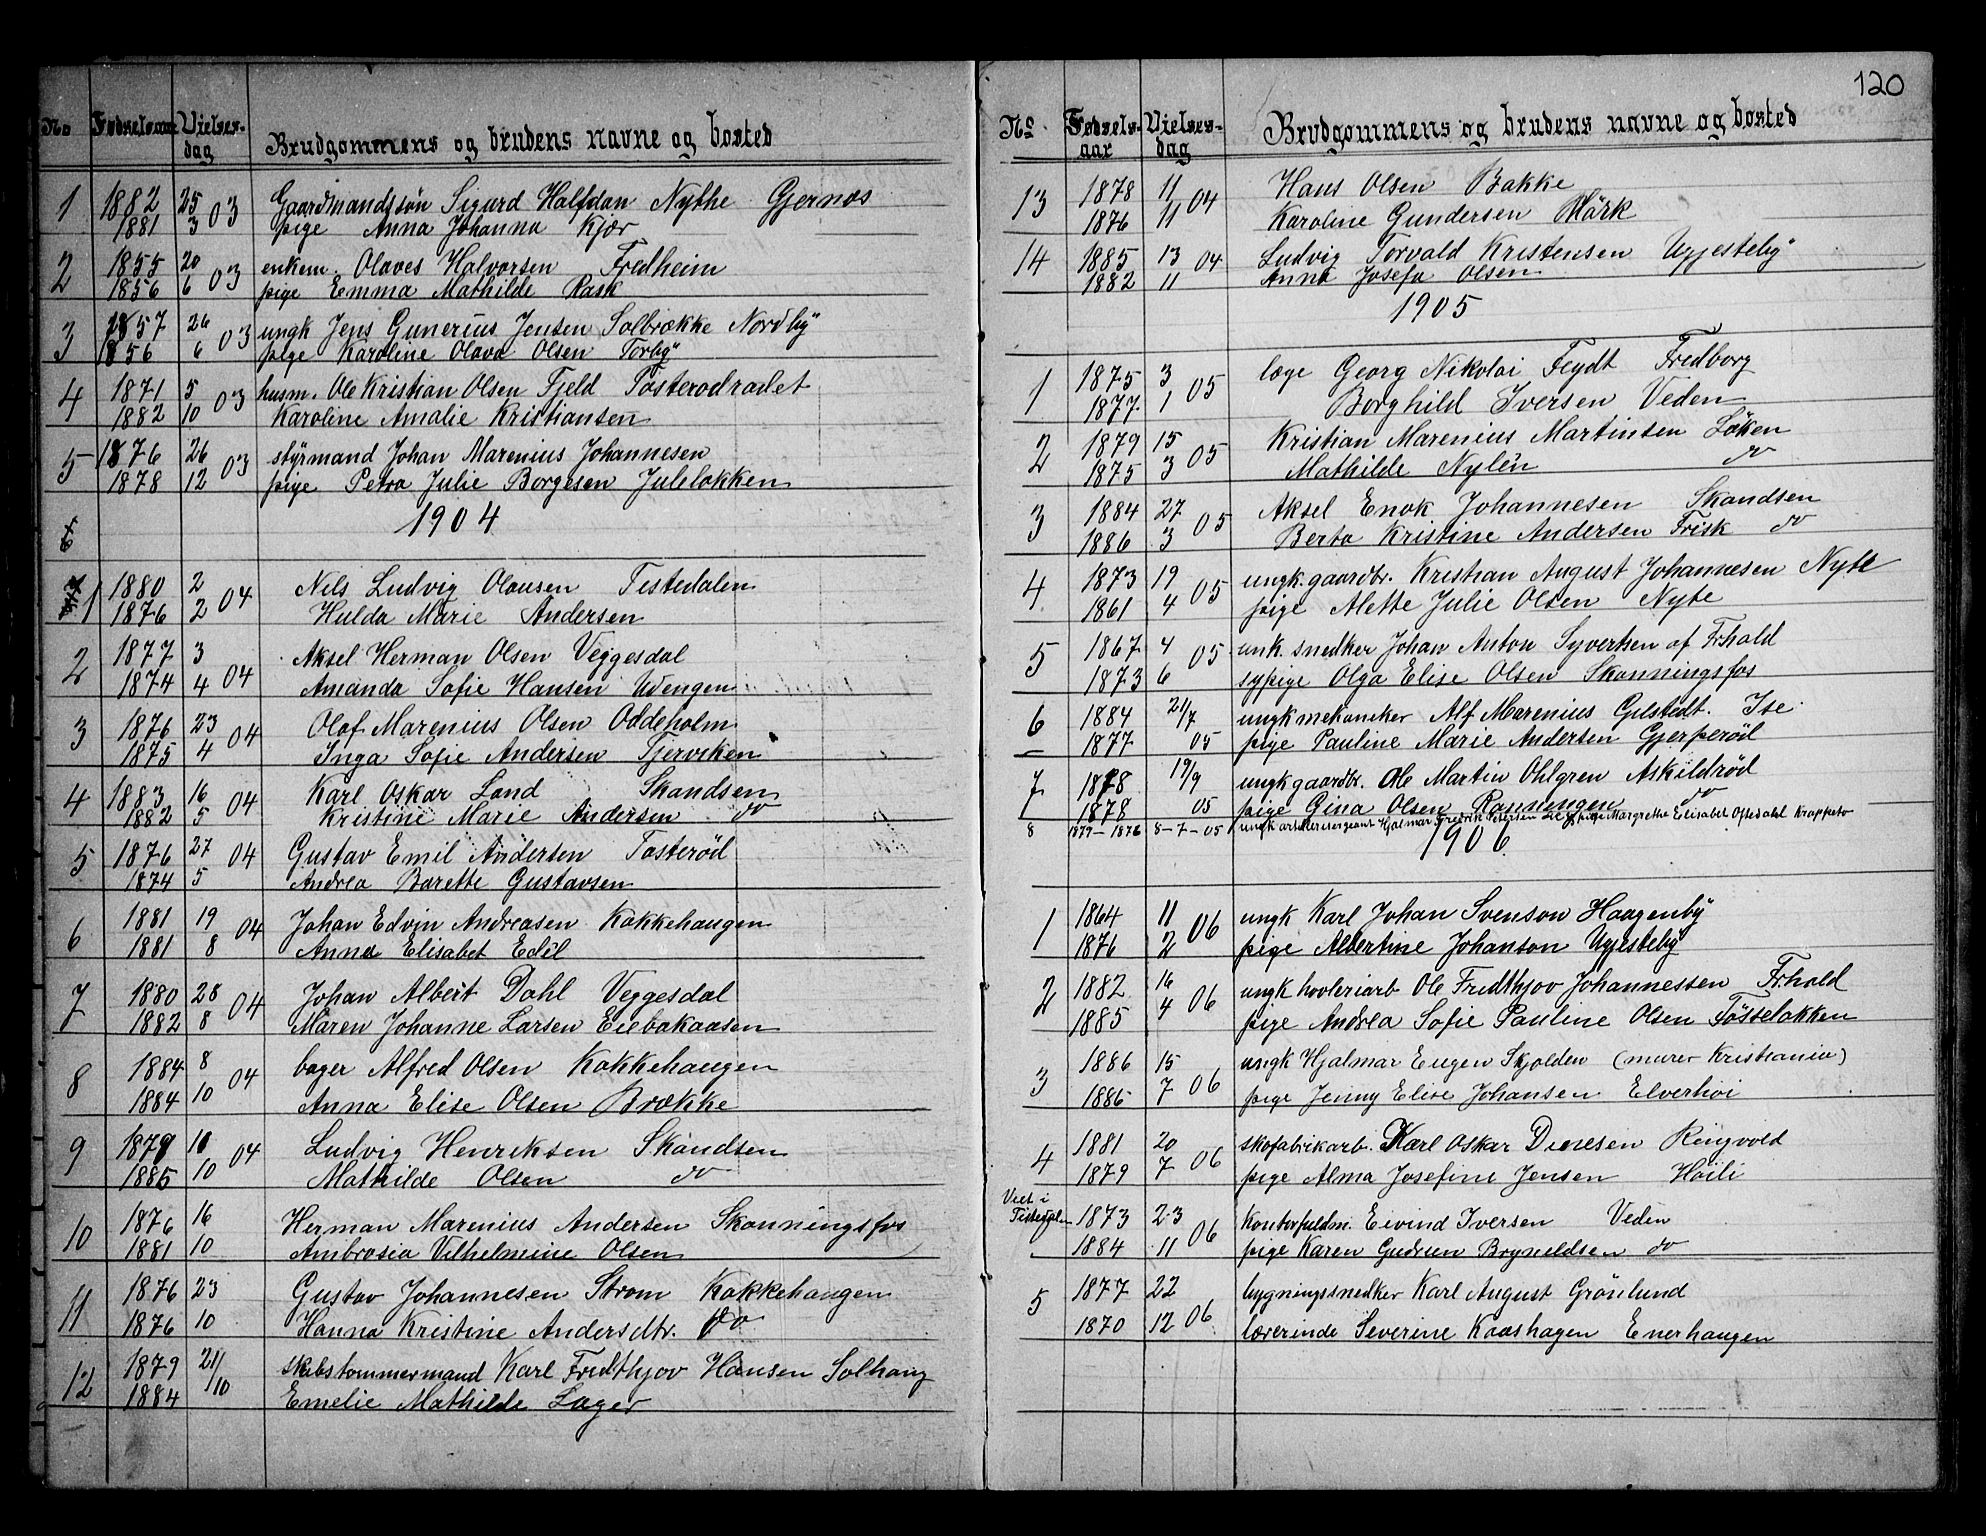 No Fødselsaar Vielses-dag Brudgommens og brudens navne og bosted
1 1882 25 Gaardmandssøn Sigurd Halfdan Nythe Gjernæs
1881 3 03 pige Anna Johanna Kjær
2 1855 20 enkem. Olaves Halvorsen Fredheim
1856 6 03 pige Emma Mathilde Rask
3 1857 26 03 ungk Jens Gunerius Jensen Solbrække Nordby
1856 6 pige Karoline Olava Olsen Torby
4 1871 5 03 husm. Ole Kristian Olsen Fjeld Tosterødradet
1882 10 Karoline Amalie Kristiansen
5 1876 26 03 styrmand Johan Marenius Johannesen
1878 12 pige Petra Julie Borgesen Juleløkken
1904
6
1 1880 2 04 Nils Ludvig Olausen Tistedalen
1876 2 Hulda Marie Andersen
2 1877 3 04 Aksel Herman Olsen Veggesdal
1874 4 Amanda Sofie Hansen Udengen
3 1876 23 04 Olaf Marenius Olsen Oddeholm
1875 4 Inga Sofie Andersen Tjerviken
4 1883 16 04 Karl Oskar Land Skandsen
1882 5 Kristine Marie Andersen do
5 1876 27 04 Gustav Emil Andersen Tosterød
1874 5 Andrea Barette Gustavsen
6 1881 19 04 Johan Edvin Andreasen Kakkehaugen
1881 8 Anna Elisabet Edil
7 1880 28 04 Johan Albert Dahl Veggesdal
1882 8 Maren Johanne Larsen Eiebakaasen
8 1884 8 04 bager Alfred Olsen Kakkehaugen
1884 10 Anna Elise Olsen Brække
9 1879 10 04 Ludvig Henriksen Skandsen
1885 10 Mathilde Olsen do
10 1876 16 Herman Marenius Andersen Skonningsfos
1881 10 Ambrosia Vilhelmine Olsen
11 1876 23 Gustav Johannesen Strøm Kakkehaugen
1876 10 Hanna Kristine Andersdtr. do
12 1879 21/10 skibstømmermand Karl Fridthjov Hansen Solhaug
1884 Emelie Mathilde Lager
120
No. Fødsels-aar Vielses-dag Brudgommens og brudens navne og bosted
13 1878 11 04 Hans Olsen Bakke
1876 11 Karoline Gundersen Mörk
14 1885 13 04 Ludvig Torvald Kristensen Ugjesteby
1882 11 Anna Josefa Olsen
1905
1 1875 3 05 læge Georg Nikolai Feydt Fredborg
1877 1 Borghild Iversen Veden
2 1879 15 05 Kristian Marenius Martinsen Løken
1875 3 Mathilde Nylén do
3 1884 27 05 Aksel Enok Johannesen Skandsen
1886 3 Berta Kristine Andersen Frisk do
4 1873 19 05 ungk. gaardbr. Kristian August Johannesen Nyte
1861 4 pige Alette Julie Olsen Nyte
5 1867 4 05 unk. snedker Johan Anton Syvertsen af Frhald
1873 6 sypige Olga Elise Olsen Skonningsfos
6 1884 21/7 ungk mekaniker Alf Marenius Gilstedt. Ise
1877 05 pige Pauline Marie Andersen Gjerperød
7 1878 19/9 ungk gaardbr. Ole Martin Ohlgren Askildrød
1878 05 pige Gina Olsen Rønningen do
8 1879 - 1876 8-7-05 ungk artillerisergeant Hjalmar Fredrik Petersen pige Margrethe Elisabet Oftedahl Krappeto
1906
1 1864 11 06 ungk Karl Johan Svenson Haagenby
1876 2 pige Albertine Johanson Ugjesteby
2 1882 16 06 ungk hovleriarb Ole Fridthjov Johannessen Frhald
1885 4 pige Andrea Sofie Pauline Olsen Fösseløkken
3 1886 15 06 ungk Hjalmar Eugen Skjolden (murer Kristiania)
1886 7 pige Jenny Elise Johansen Elverhöi
4 1881 20 06 skofabrikarb. Karl Oskar Diensen Ringvold
1879 7 pige Alma Josefine Jensen Höili
Viet i Tistedalen 1873 23 06 kontorfuldm. Eivind Iversen Veden
1884 11 pige Karen Gudrun Bryneldsen do
5 1877 22 bygningssnedker Karl August Grönlund
1870 12 06 lærerinde Severine Kaashagen Enerhaugen